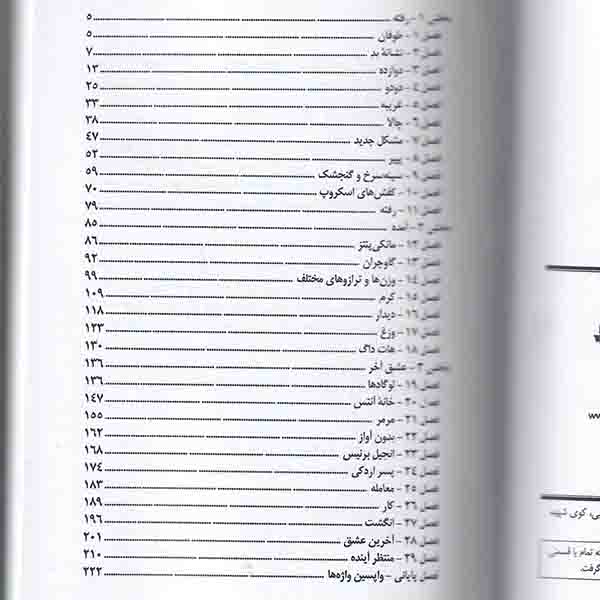 بخش ۱ - رفته ۵
فصل ۱ - طوفان ۵
فصل ۲ - نشانهٔ بد ۷
فصل ۳ - دوازده ۱۳
فصل ۴ - دودو ۲۵
فصل ۵ - غریبه ۳۳
فصل ۶ - ۳۸
فصل ۷ - مشکل جدید ۴۷
فصل ۸ - پیپر ۵۲
فصل ۹ - سینه‌سرخ و گنجشک ۵۹
فصل ۱۰ - کفش‌های اسکروپ ۷۰
فصل ۱۱ - رفته ۷۹
بخش ۲ - آمده ۸۵
فصل ۱۲ - مانکی‌پنتز ۸۶
فصل ۱۳ - گاوچران ۹۲
فصل ۱۴ - وزن‌ها و ترازوهای مختلف ۹۹
فصل ۱۵ - کرم ۱۰۹
فصل ۱۶ - دیدار ۱۱۸
فصل ۱۷ - وزغ ۱۲۳
فصل ۱۸ - هات داگ ۱۳۰
بخش ۳ - عشق آخر ۱۳۶
فصل ۱۹ - لوگادها ۱۳۶
فصل ۲۰ - خانهٔ آنتس ۱۴۷
فصل ۲۱ - مرمر ۱۵۵
فصل ۲۲ - بدون آواز ۱۶۲
فصل ۲۳ - انجیل برنیس ۱۶۸
فصل ۲۴ - پسر اردکی ۱۷۴
فصل ۲۵ - معامله ۱۸۳
فصل ۲۶ - کار ۱۸۹
فصل ۲۷ - انگشت ۱۹۶
فصل ۲۸ - آخرین عشق ۲۰۱
فصل ۲۹ - منتظر آینده ۲۱۰
فصل پایانی - واپسین واژه‌ها ۲۲۲
کوی شهید
تمام یا قسمتی
گرفت.